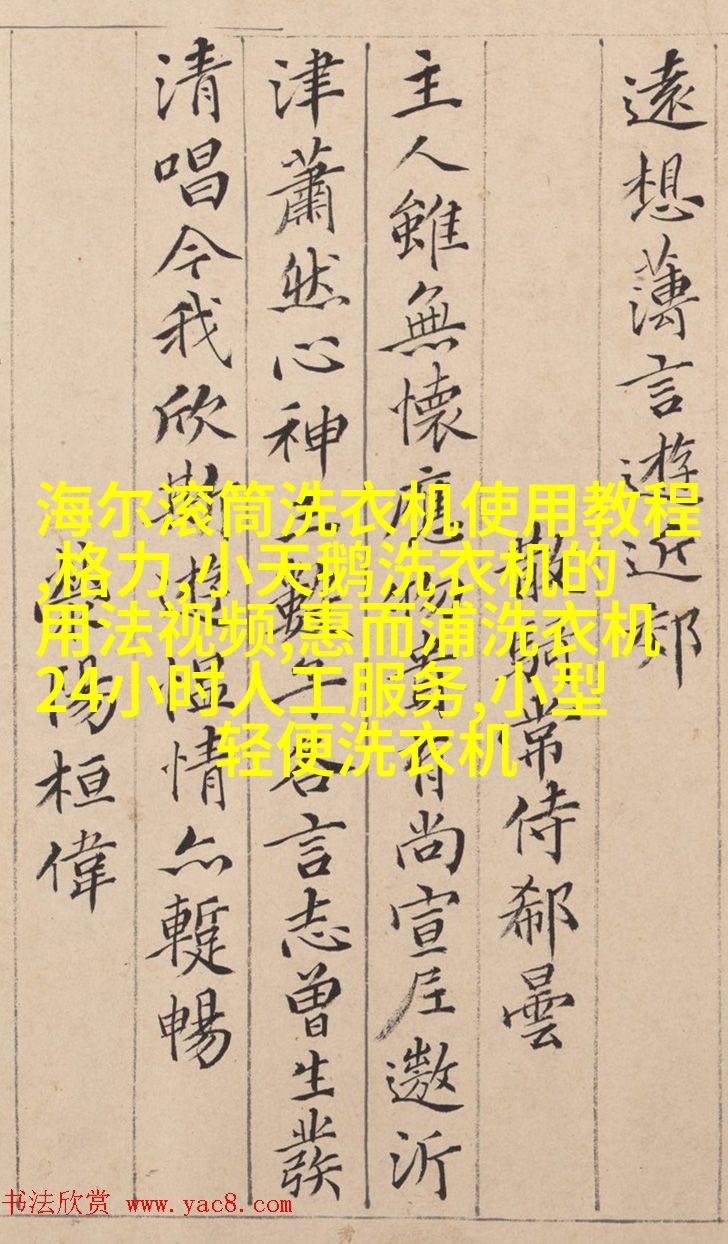 遠想薄言遊近郊
散騎常侍郗曇
主人雖無懷應物貴有尚宣尼遨沂
津蕭然心神王數子各言志曾生發
清唱今我欣斯遊慍情亦暫暢
榮陽桓偉
海尔滚筒洗衣机使用教程
,格力,小天鹅洗衣机的
用法视频,惠而浦洗衣机
24小时人工服务,小型
轻便洗衣机
书法欣赏 www.yac8.com